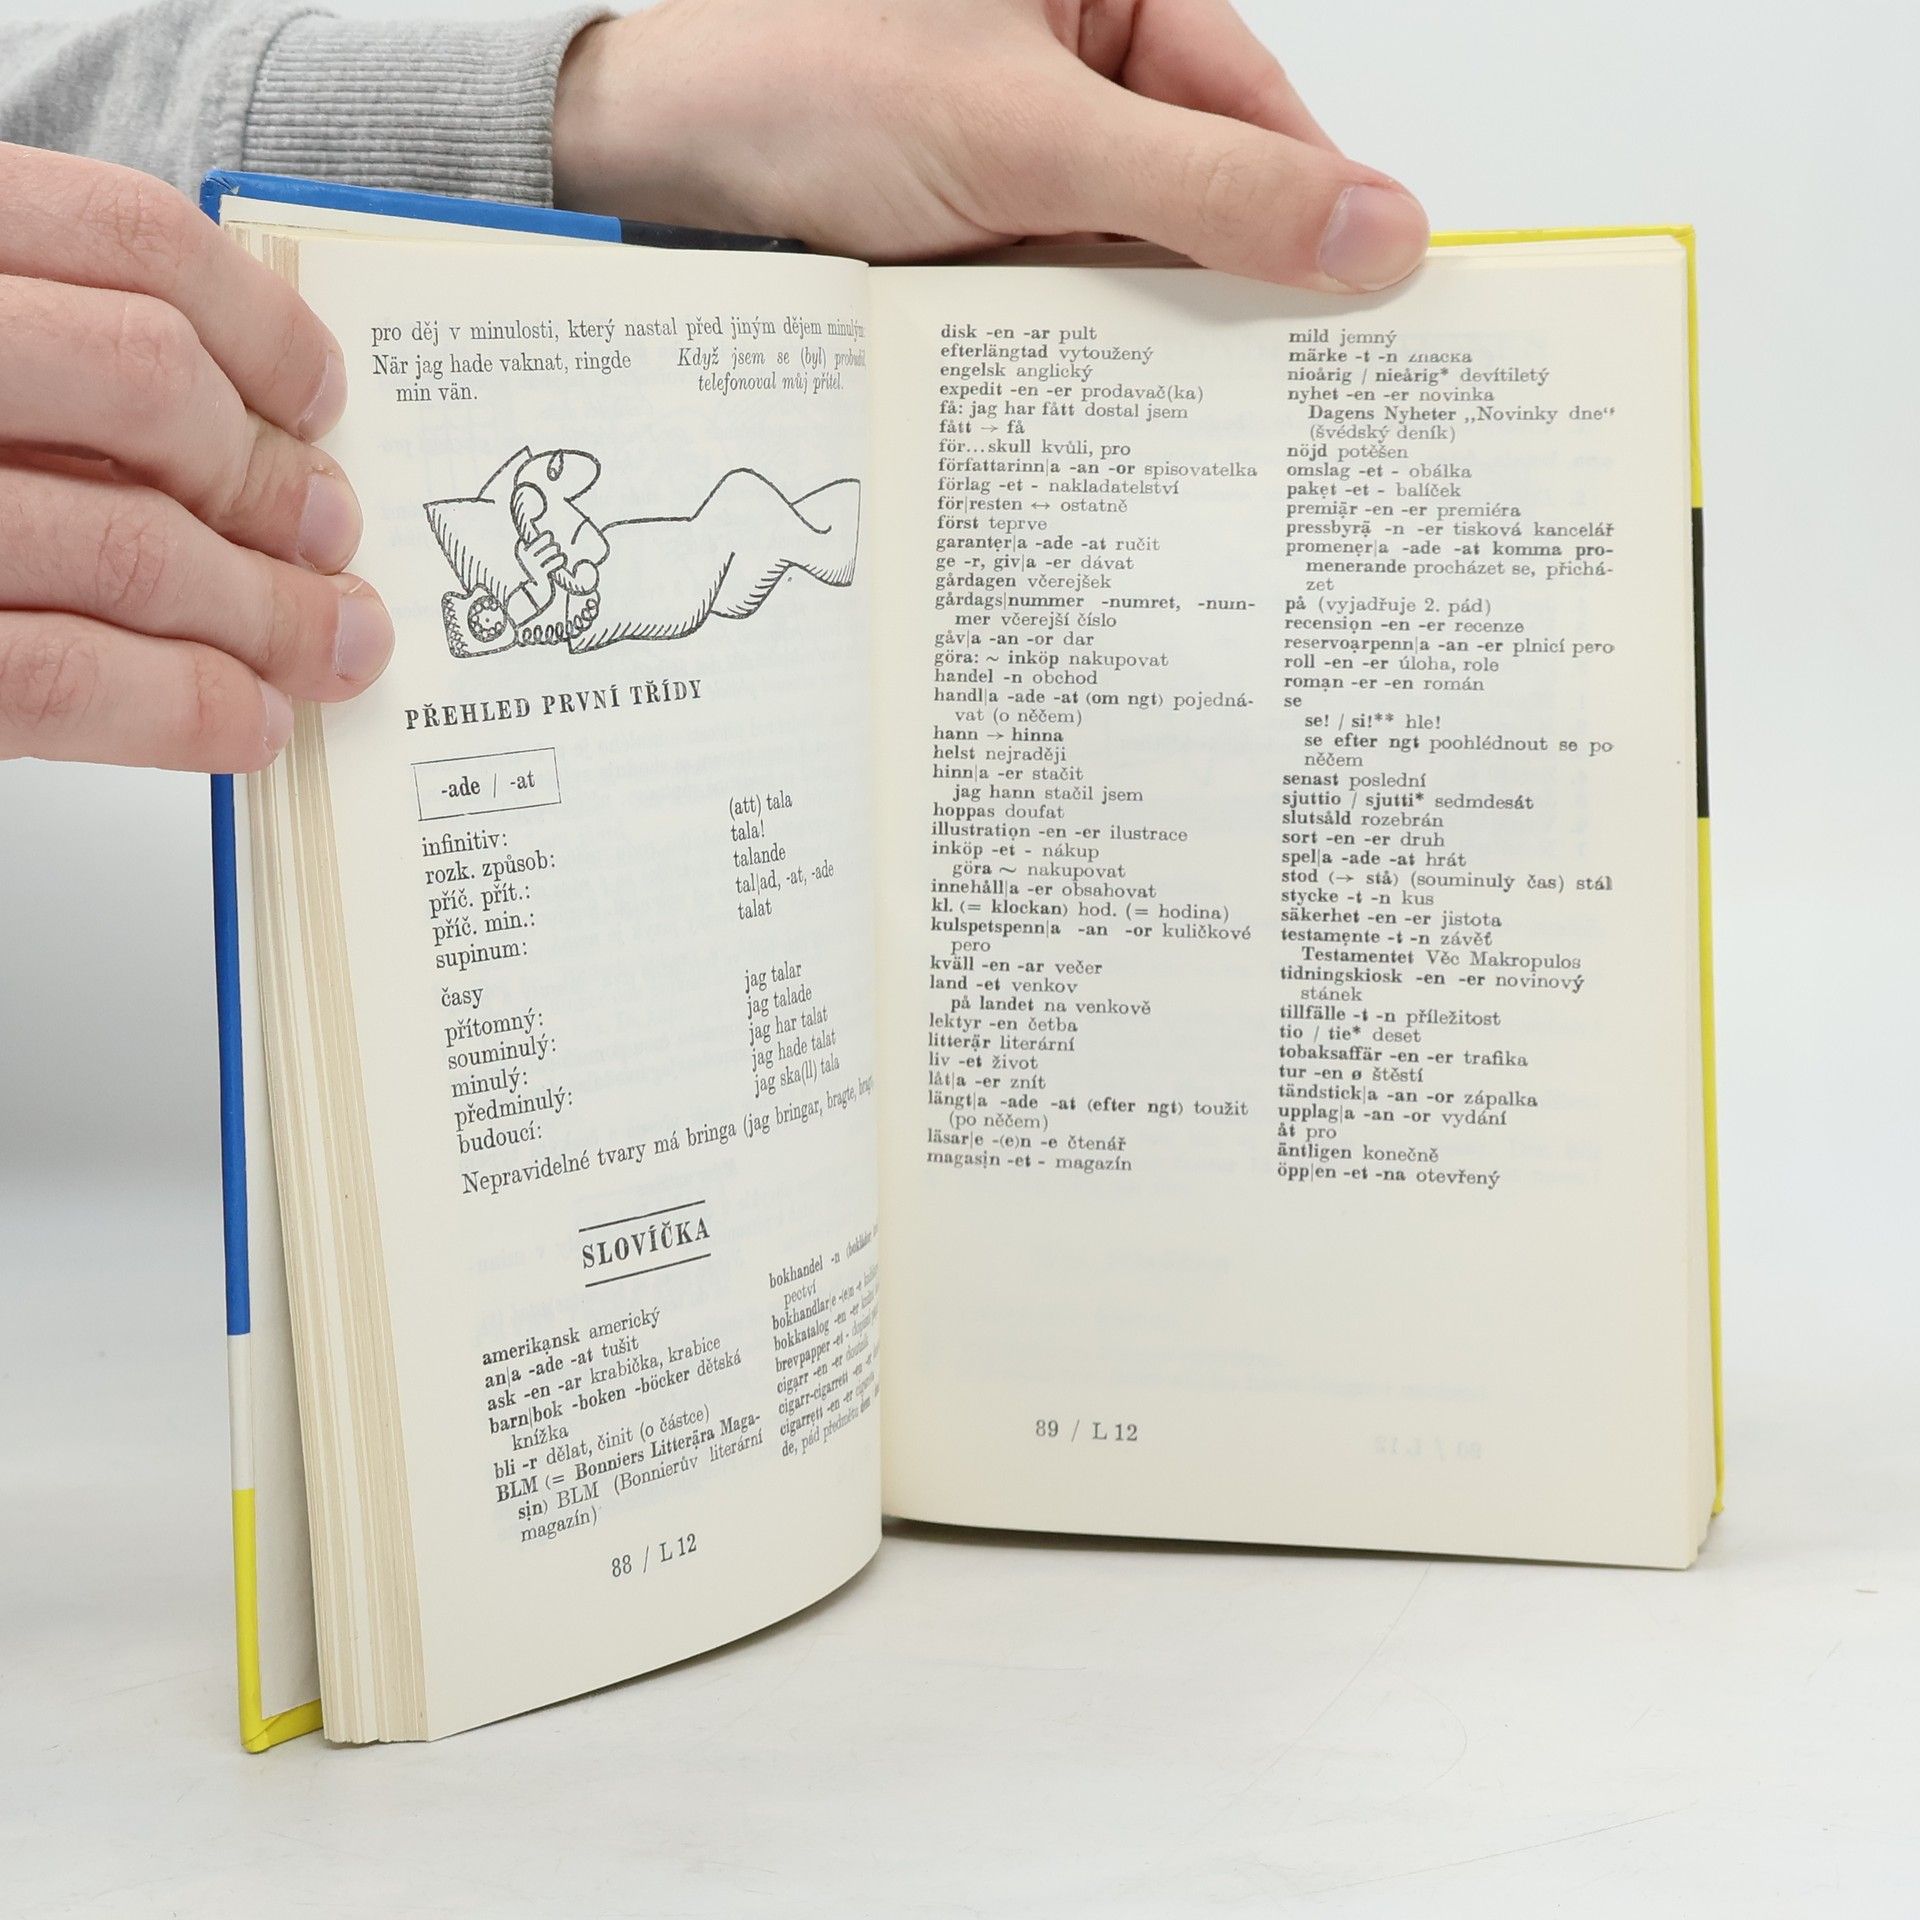 pro děj v minulosti, který nastal před jiným dějem minulým:
När jag hade vaknat, ringde
min vän.
Když jsem se (byl) probudil,
telefonoval můj přítel.
PŘEHLED PRVNÍ TŘÍDY
-ade / -at
infinitiv: (att) tala
rozk. způsob: tala!
příč. přít.: talande
příč. min.: tal|ad, -at, -ade
supinum: talat
časy
přítomný: jag talar
souminulý: jag talade
minulý: jag har talat
předminulý: jag hade talat
budoucí: jag ska(ll) tala
Nepravidelné tvary má bringa (jag bringar, bragte,
SLOVÍČKA
amerikạnsk americký
an|a -ade -at tušit
ask -en -ar krabička, krabice
barn|bok -boken -böcker dětská
knížka
bli -r dělat, činit (o částce)
BLM (= Bonniers Litterạ̈ra Maga-
sịn) BLM (Bonnierův literární
magazín)
bokhandel -n
pectví
bokhandlar|e -(e)n -e
bokkatalog -en -er
brevpapper -et -
cigarr -en -er doutník
cigarr-cigarrett -en -er
cigarrẹtt -en -er cigareta
de, pád předmětu dem
88 / L 12
disk -en -ar pult
efterlängtad vytoužený
engelsk anglický
expedit -en -er prodavač(ka)
få: jag har fått dostal jsem
fått → få
för...skull kvůli, pro
författarinn|a -an -or spisovatelka
förlag -et - nakladatelství
för|resten ↔ ostatně
först teprve
garantẹr|a -ade -at ručit
ge -r, giv|a -er dávat
gårdagen včerejšek
gårdags|nummer -numret, -num-
mer včerejší číslo
gåv|a -an -or dar
göra: ~ inköp nakupovat
handel -n obchod
handl|a -ade -at (om ngt) pojedná-
vat (o něčem)
hann → hinna
helst nejraději
hinn|a -er stačit
jag hann stačil jsem
hoppas doufat
illustratiọn -en -er ilustrace
inköp -et - nákup
göra ~ nakupovat
innehåll|a -er obsahovat
kl. (= klockan) hod. (= hodina)
kulspetspenn|a -an -or kuličkové
pero
kväll -en -ar večer
land -et venkov
på landet na venkově
lektyr -en četba
litterạ̈r literární
liv -et život
låt|a -er znít
längt|a -ade -at (efter ngt) toužit
(po něčem)
läsar|e -(e)n -e čtenář
magasịn -et - magazín
mild jemný
märke -t -n značka
nioårig / nieårig* devítiletý
nyhet -en -er novinka
Dagens Nyheter „Novinky dne“
(švédský deník)
nöjd potěšen
omslag -et - obálka
pakẹt -et - balíček
premiạ̈r -en -er premiéra
pressbyrạ̊ -n -er tisková kancelář
promenẹr|a -ade -at komma pro-
menerande procházet se, přichá-
zet
på (vyjadřuje 2. pád)
recensiọn -en -er recenze
reservoạrpenn|a -an -er plnicí pero
roll -en -er úloha, role
romạn -er -en román
se
se! / si!** hle!
se efter ngt poohlédnout se po
něčem
senast poslední
sjuttio / sjutti* sedmdesát
slutsåld rozebrán
sort -en -er druh
spel|a -ade -at hrát
stod (→ stå) (souminulý čas) stál
stycke -t -n kus
säkerhet -en -er jistota
testamẹnte -t -n závěť
Testamentet Věc Makropulos
tidningskiosk -en -er novinový
stánek
tillfälle -t -n příležitost
tio / tie* deset
tobaksaffär -en -er trafika
tur -en ø štěstí
tändstick|a -an -or zápalka
upplag|a -an -or vydání
åt pro
äntligen konečně
öpp|en -et -na otevřený
89 / L 12